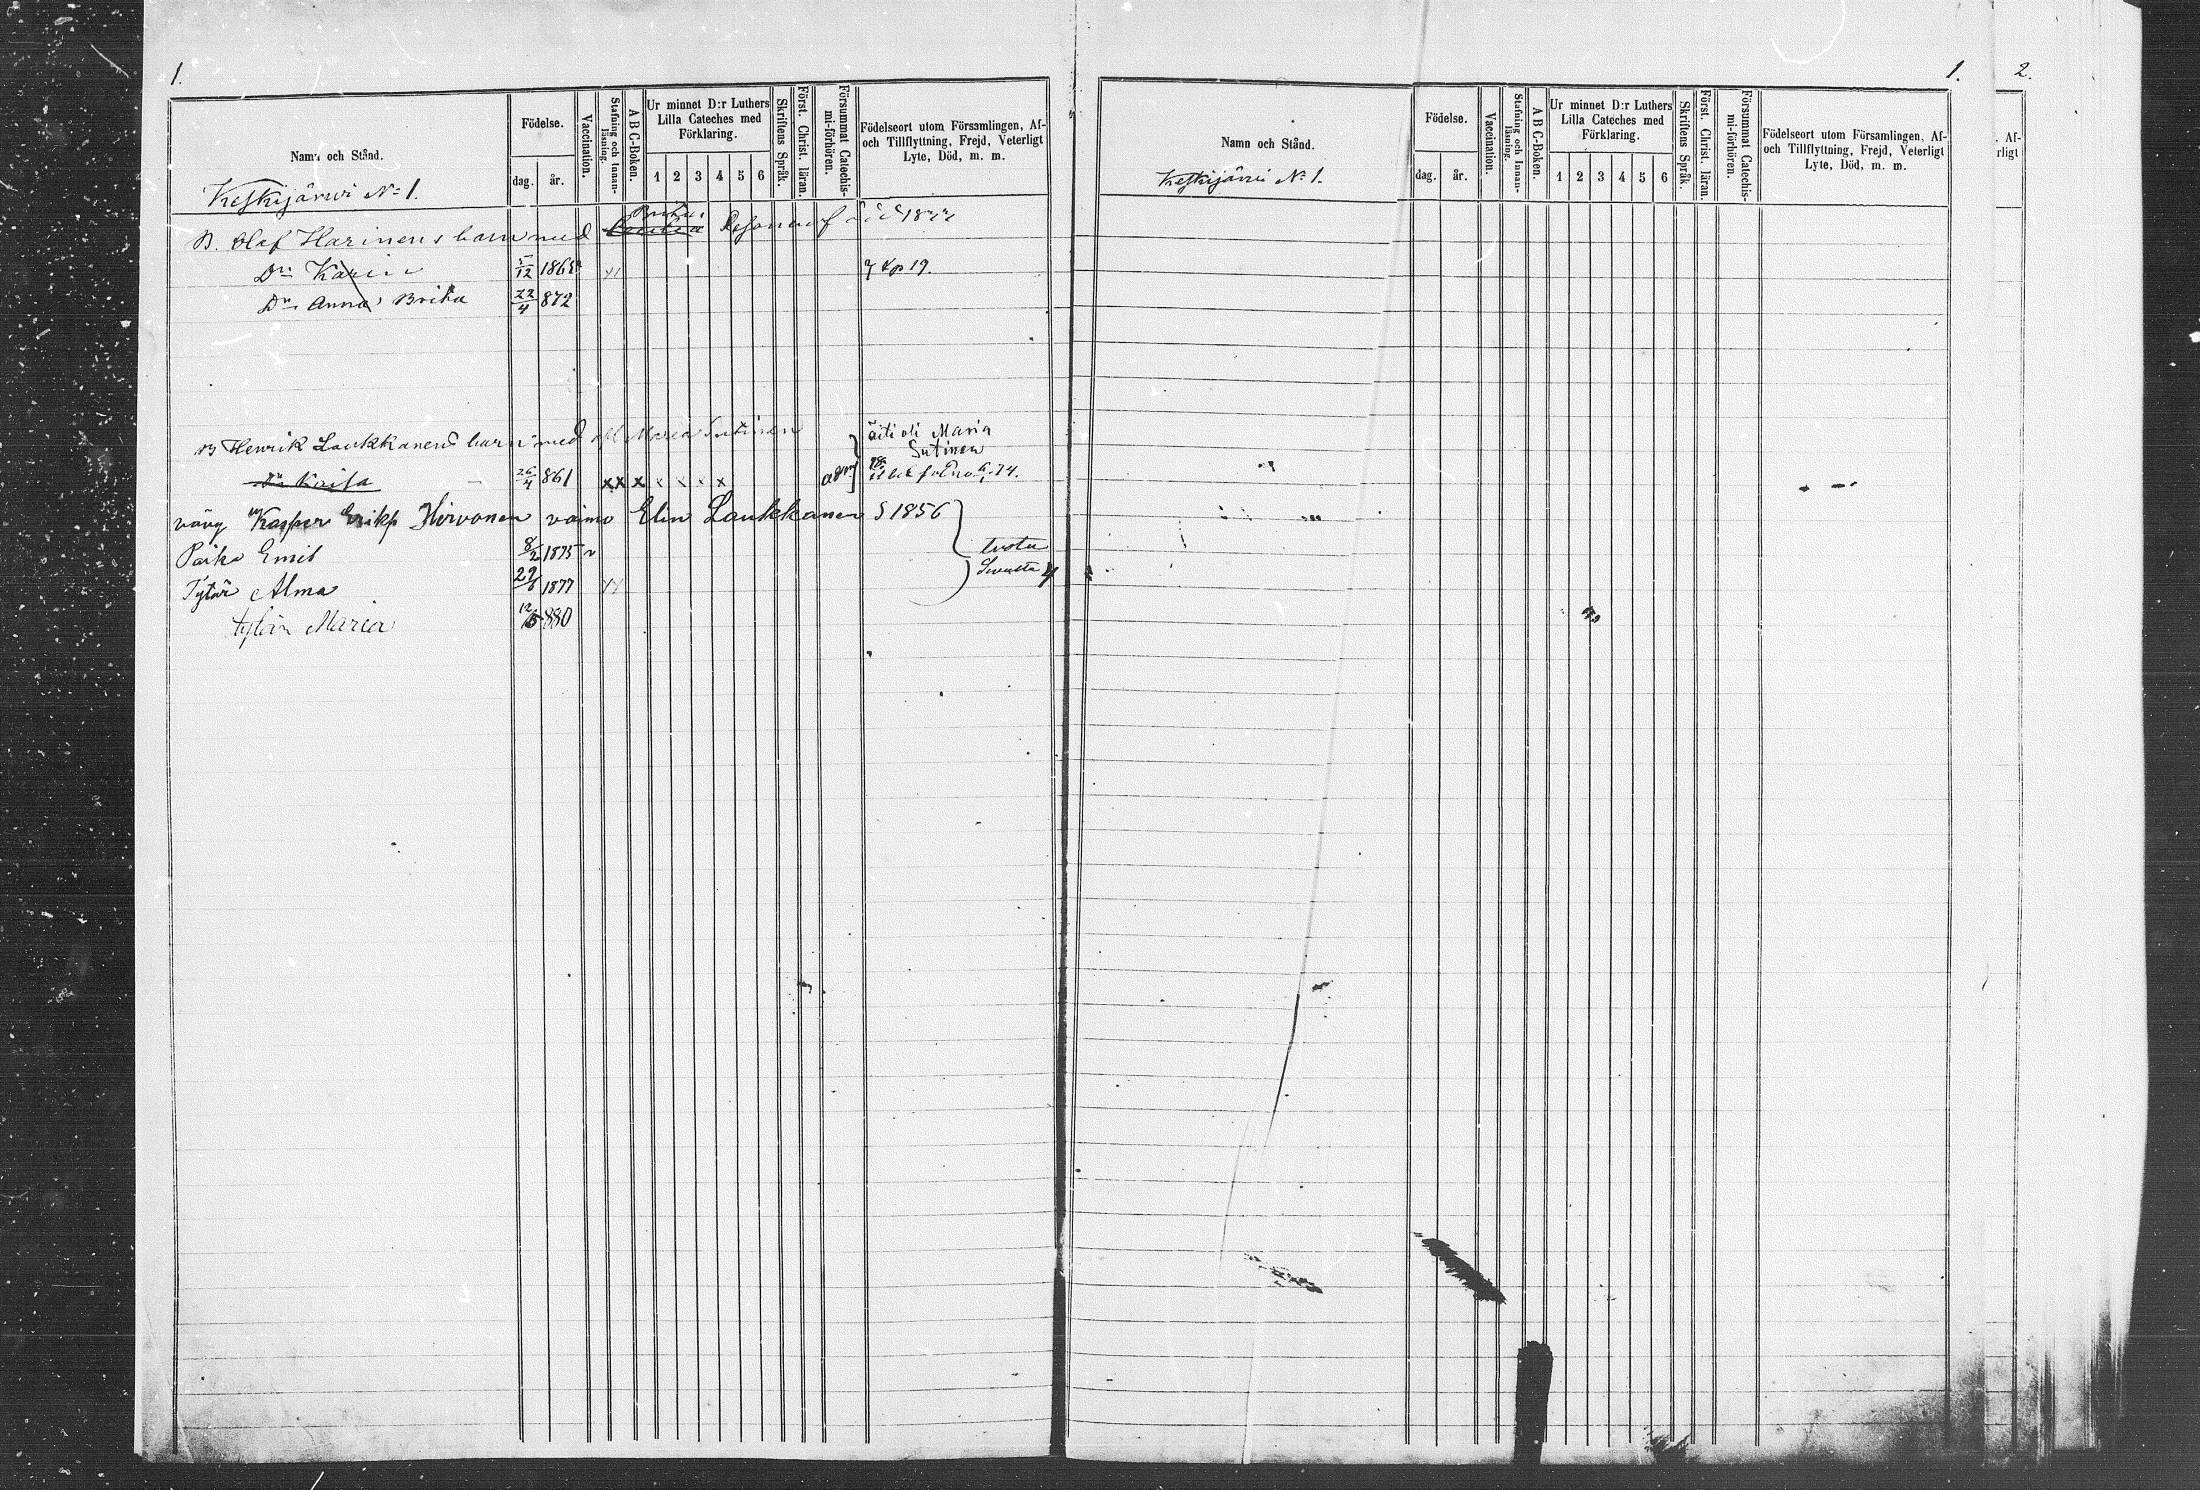 1.
Namn och Stånd.
Födelse.
dag. år.
Vaccination.
Stafning och Innanläsning.
A B C-Boken.
Ur minnet D:r Luthers Lilla Cateches med Förklaring.
1 2 3 4 5 6
Skriftens Språk.
Först. Christ. läran.
Försummat Catechismi-förhören.
Födelseort utom Församlingen, Af- och Tillflyttning, Frejd, Veterligt Lyte, Död, m. m.
Keskijärwi No 1.
B. Olaf Harinens barn med
Dr. Karin 5/12 186
Dr. Anna Brita 22/4 872
B Henrik Laukkanens barn med Maria Sutinen
äiti oli Maria Sutinen
Dr Kaisa 26/4 861 x x x x x x x
vävy Kasper Hirvonen vaimo Elin Laukkanen S 1856
Poika Emil 8/2 1875 v
Tytär Alma 29/6 1877
tytär Maria 12/5 880
1.
Namn och Stånd.
Födelse.
dag. år.
Vaccination.
Stafning och Innanläsning.
A B C-Boken.
Ur minnet D:r Luthers Lilla Cateches med Förklaring.
1 2 3 4 5 6
Skriftens Språk.
Först. Christ. läran.
Försummat Catechismi-förhören.
Födelseort utom Församlingen, Af- och Tillflyttning, Frejd, Veterligt Lyte, Död, m. m.
Keskijärwi No 1.
2.